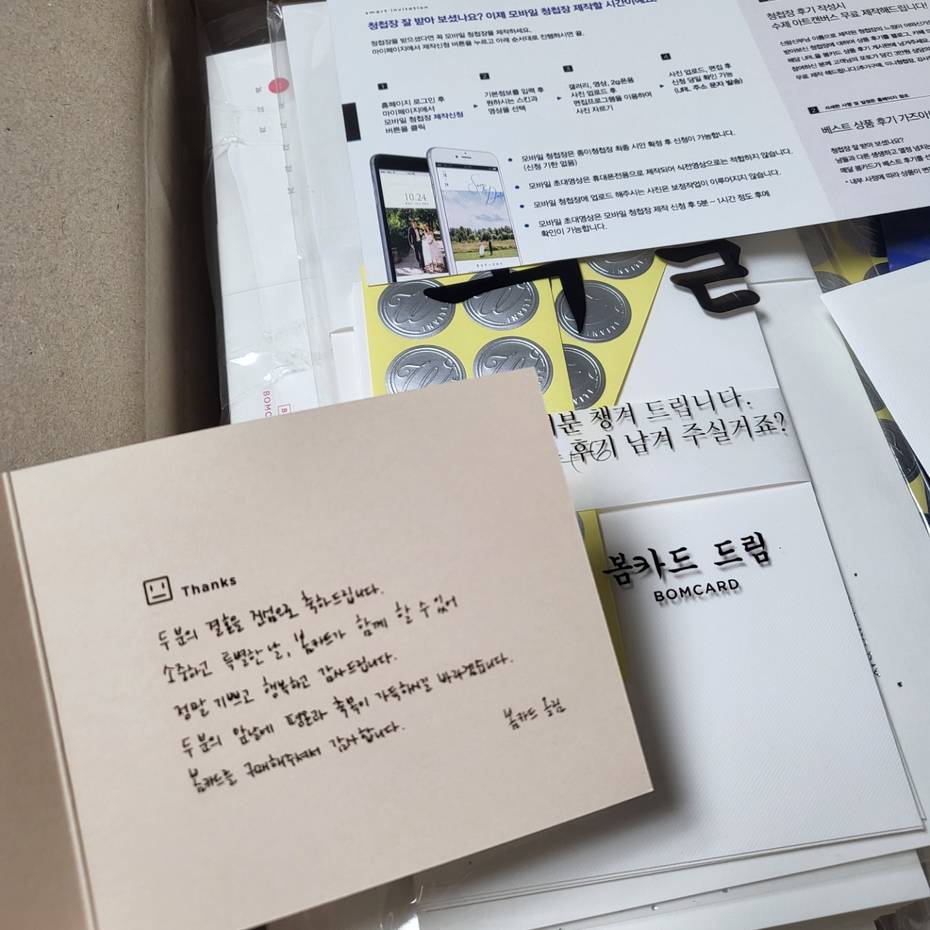 smart invitation
청첩장 잘 받아 보셨나요? 이제 모바일 청첩장 제작할 시간이예요.
청첩장을 받으셨다면 꼭 모바일 청첩장을 제작하세요.
마이페이지에서 제작신청 버튼을 누르고 아래 순서대로 진행하시면 끝.
1
홈페이지 로그인 후
마이페이지에서
모바일 청첩장 제작신청
버튼을 클릭
2
기본정보를 입력 후
원하시는 스킨과
영상을 선택
3
갤러리, 영상, 2g폰용
사진 업로드 후
편집프로그램을 이용하여
사진 자르기
4
사진 업로드, 편집 후
신청 당일 확인 가능
(URL 주소 문자 발송)
모바일 청첩장은 종이청첩장 최종 시안 확정 후 신청이 가능합니다.
(신청 기한 없음)
모바일 초대영상은 휴대폰전용으로 제작되어 식전영상으로는 적합하지 않습니다.
모바일 청첩장에 업로드 해주시는 사진은 보정작업이 이루어지지 않습니다.
모바일 초대영상은 모바일 청첩장 제작 신청 후 5분 ~ 1시간 정도 후에
확인이 가능합니다.
10.24
Save
Date
청첩장 후기 작성시
수제 아트캔버스 무료 제작해드립니다!
2
자세한 사항 및 일정은 홈페이지 참조
베스트 상품 후기 가즈아
청첩장 잘 받아 보셨나요?
분 챙겨 드립니다.
후기 남겨 주실거죠?
봄카드 드림
BOMCARD
Thanks
두 분의 결혼을 진심으로 축하드립니다.
소중하고 특별한 날, 봄카드가 함께 할 수 있어
정말 기쁘고 행복하고 감사드립니다.
두 분의 앞날에 평온과 축복이 가득하시길 바라겠습니다.
봄카드를 구매해주셔서 감사합니다.
봄카드 올림